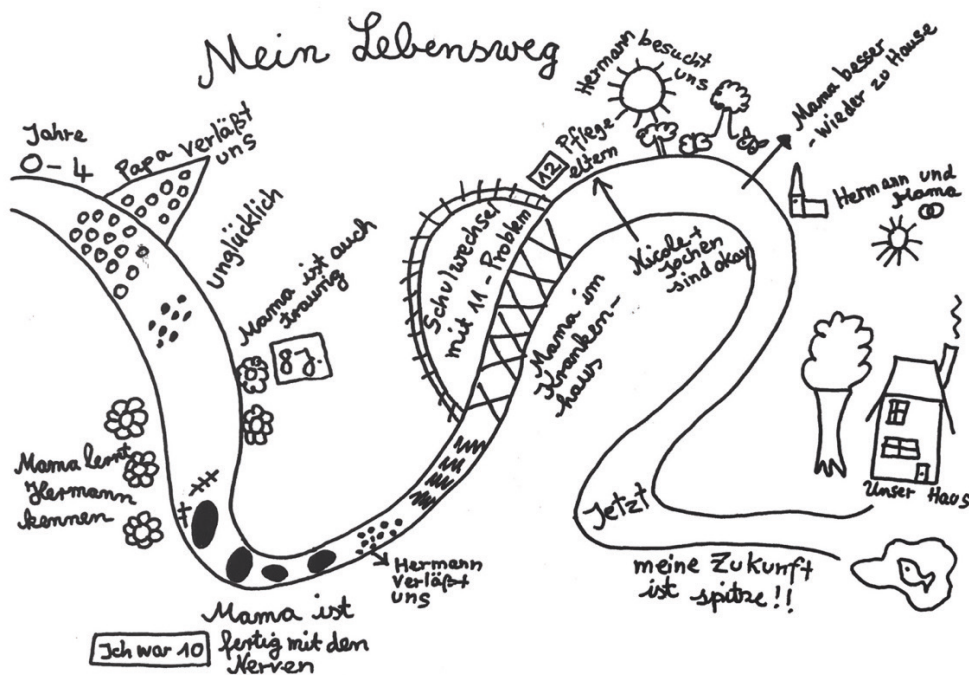 Mein Lebensweg
Jahre
0-4
Papa verläßt
uns
unglücklich
Mama ist auch
traurig
8J.
Mama lernt
Hermann
kennen
Ich war 10
Mama ist
fertig mit den
Nerven
Hermann
verläßt
uns
Schulwechsel
mit 11-Problem
Mama im
Kranken-
haus
12
Pflege-
eltern
Nicole+
Jochen
sind okay
Hermann besucht
uns
Mama besser
-wieder zu Hause
Hermann und
Mama
Unser Haus
Jetzt
meine Zukunft
ist spitze!!